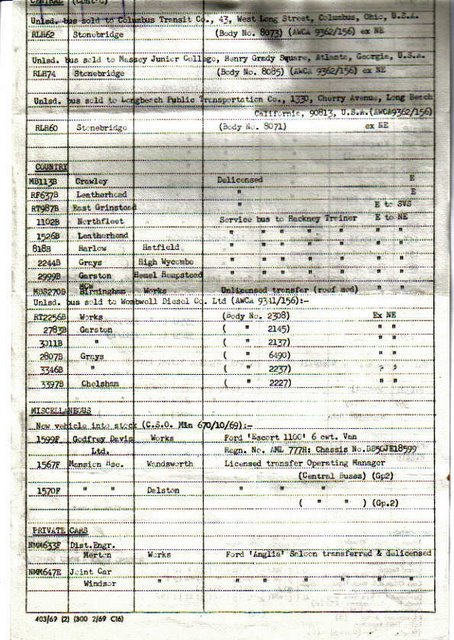 CENTRAL (Cont'd)
Unlsd. bus sold to Columbus Transit Co., 43, West Long Street, Columbus, Ohio, U.S.A.
RLH62 Stonebridge (Body No. 8073) (AWCA 9362/156) ex NE
Unlsd. bus sold to Massey Junior College, Henry Grady Square, Atlanta, Georgia, U.S.A.
RLH74 Stonebridge (Body No. 8085) (AWCA 9362/156) ex NE
Unlsd. bus sold to Longbeach Public Transportation Co., 1330, Cherry Avenue, Long Beach
California, 90813, U.S.A.(AWCA9362/156)
RLH60 Stonebridge (Body No. 8071) ex NE
COUNTRY
MB113B Crawley Delicensed E
RF637B Leatherhead " E
RT987B East Grinstead " E to SVS
1102B Northfleet Service bus to Hackney Trainer E to NE
1526B Leatherhead " " " " " " " "
818B Harlow Hatfield " " " " " " " "
2244B Grays High Wycombe " " " " " " " "
2999B Garston Hemel Hempstead " " " " " " " "
MBS270B MCW Birmingham Works Unlicensed transfer (roof mod)
Unlsd. bus sold to Wombwell Diesel Co. Ltd (AWCA 9341/156):-
RT2256B Works (Body No. 2308) Ex NE
2783B Garston ( " 2145) " "
3011B " ( " 2137) " "
2807B Grays ( " 6490) " "
3346B " ( " 2237) " "
3397B Chelsham ( " 2227) " "
MISCELLANEOUS
New vehicle into stock (C.S.O. Min 670/10/69):-
1599F Godfrey Davis Works Ford 'Escort 1100' 6 cwt. Van
Ltd. Regn. No. AML 777H: Chassis No.
1567F Mansion Hse. Wandsworth Licensed transfer Operating Manager
(Central Buses) (Gp2)
1570F " " Dalston
( " " ) (Gp.2)
PRIVATE CARS
NMM633F Dist.Engr.
Merton Works Ford 'Anglia' Saloon transferred & delicensed
NMM647E Joint Car
Windsor " " " " " "
403/69 (2) (300 2/69 C16)